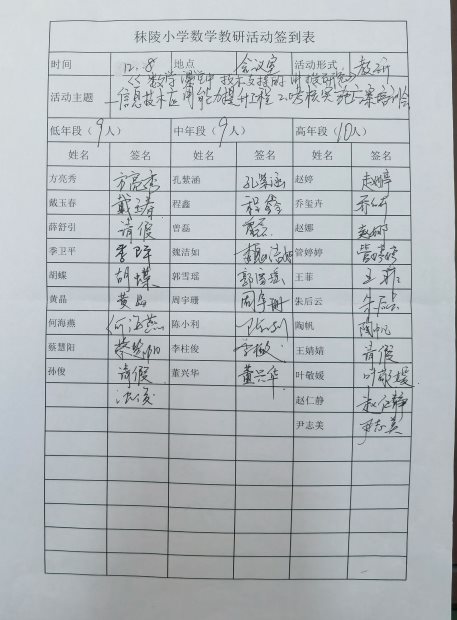 秣陵小学数学教研活动签到表
时间 12.8 地点 会议室 活动形式 教研
《数学课堂中技术支持的
活动主题 —信息技术应用能力提升工程2.0考核实施方案培训会
低年段（9人） 中年段（9人） 高年段（10人）
姓名 签名 姓名 签名 姓名 签名
方亮秀 方亮秀 孔紫涵 孔紫涵 赵婷 赵婷
戴玉春 戴玉春 程鑫 程鑫 乔玺卉 乔玺卉
薛舒引 请假 曾磊 曾磊 赵娜 赵娜
季卫平 季卫平 魏洁如 魏洁如 管婷婷 管婷婷
胡蝶 胡蝶 郭雪瑶 郭雪瑶 王菲 王菲
黄晶 黄晶 周宇珊 周宇珊 朱后云 朱后云
何海燕 何海燕 陈小利 陈小利 陶帆 陶帆
蔡慧阳 蔡慧阳 李柱俊 王婧婧 请假
孙俊 请假 董兴华 董兴华 叶敬媛 叶敬媛
赵仁静 赵仁静
尹志美 尹志美